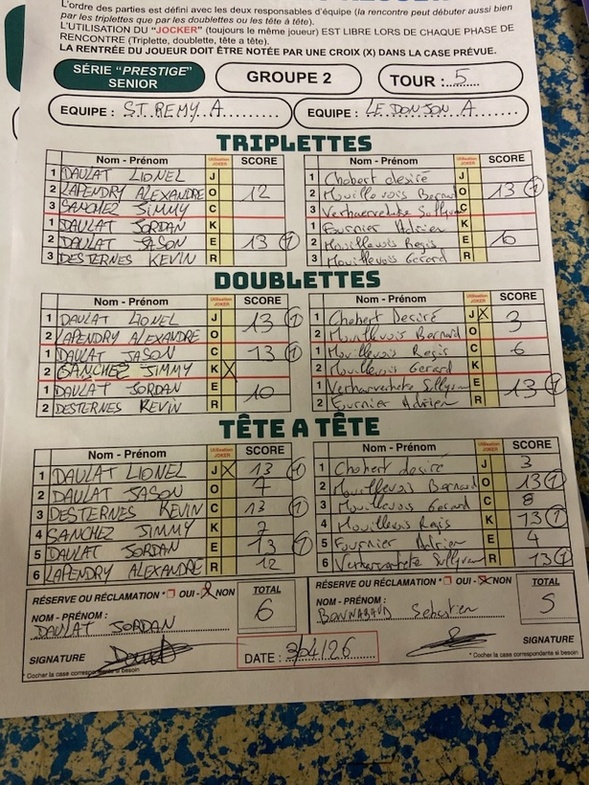 L'ordre des parties est défini avec les deux responsables d'équipe (la rencontre peut débuter aussi bien
par les triplettes que par les doublettes ou les tête à tête).
L'UTILISATION DU "JOCKER" (toujours le même joueur) EST LIBRE LORS DE CHAQUE PHASE DE
RENCONTRE (Triplette, doublette, tête à tête).
LA RENTRÉE DU JOUEUR DOIT ÊTRE NOTÉE PAR UNE CROIX (X) DANS LA CASE PRÉVUE.
SÉRIE "PRESTIGE" SENIOR GROUPE 2 TOUR : 5
EQUIPE : ST REMY A EQUIPE : LE DONJON A
TRIPLETTES
Nom - Prénom Utilisation JOKER SCORE Nom - Prénom Utilisation JOKER SCORE
1 DAULAT LIONEL J 1 Chobert desiré J
2 LAPENDRY ALEXANDRE O 12 2 Mouillevois Bernard O 13 1
3 SANCHEZ JIMMY C 3 C
1 DAULAT JORDAN K 1 Fournier Adrien K
2 DAULAT JASON E 13 1 2 Mouillevois Regis E 6
3 DESTERNES KEVIN R 3 Mouillevois Gerard R
DOUBLETTES
Nom - Prénom Utilisation JOKER SCORE Nom - Prénom Utilisation JOKER SCORE
1 DAULAT LIONEL J 13 1 1 Chobert Desiré J X 3
2 LAPENDRY ALEXANDRE O 2 Mouillevois Bernard O
1 DAULAT JASON C 13 1 1 Mouillevois Regis C 6
2 SANCHEZ JIMMY K X 2 Mouillevois Gerard K
1 DAULAT JORDAN E 10 1 E 13 1
2 DESTERNES KEVIN R 2 Fournier Adrien R
TÊTE A TÊTE
Nom - Prénom Utilisation JOKER SCORE Nom - Prénom Utilisation JOKER SCORE
1 DAULAT LIONEL J X 13 1 1 Chobert desiré J 3
2 DAULAT JASON O 7 2 Mouillevois Bernard O 13 1
3 DESTERNES KEVIN C 13 1 3 Mouillevois Gerard C 8
4 SANCHEZ JIMMY K 7 4 Mouillevois Regis K 13 1
5 DAULAT JORDAN E 13 1 5 Fournier Adrien E 4
6 LAPENDRY ALEXANDRE R 12 6 R 13 1
RÉSERVE OU RÉCLAMATION * OUI - X NON TOTAL 6 RÉSERVE OU RÉCLAMATION * OUI - X NON TOTAL 5
NOM - PRÉNOM : DAULAT JORDAN NOM - PRÉNOM : Sebastien
SIGNATURE DATE : 3/04/26 SIGNATURE
* Cocher la case correspondante si besoin * Cocher la case correspondante si besoin